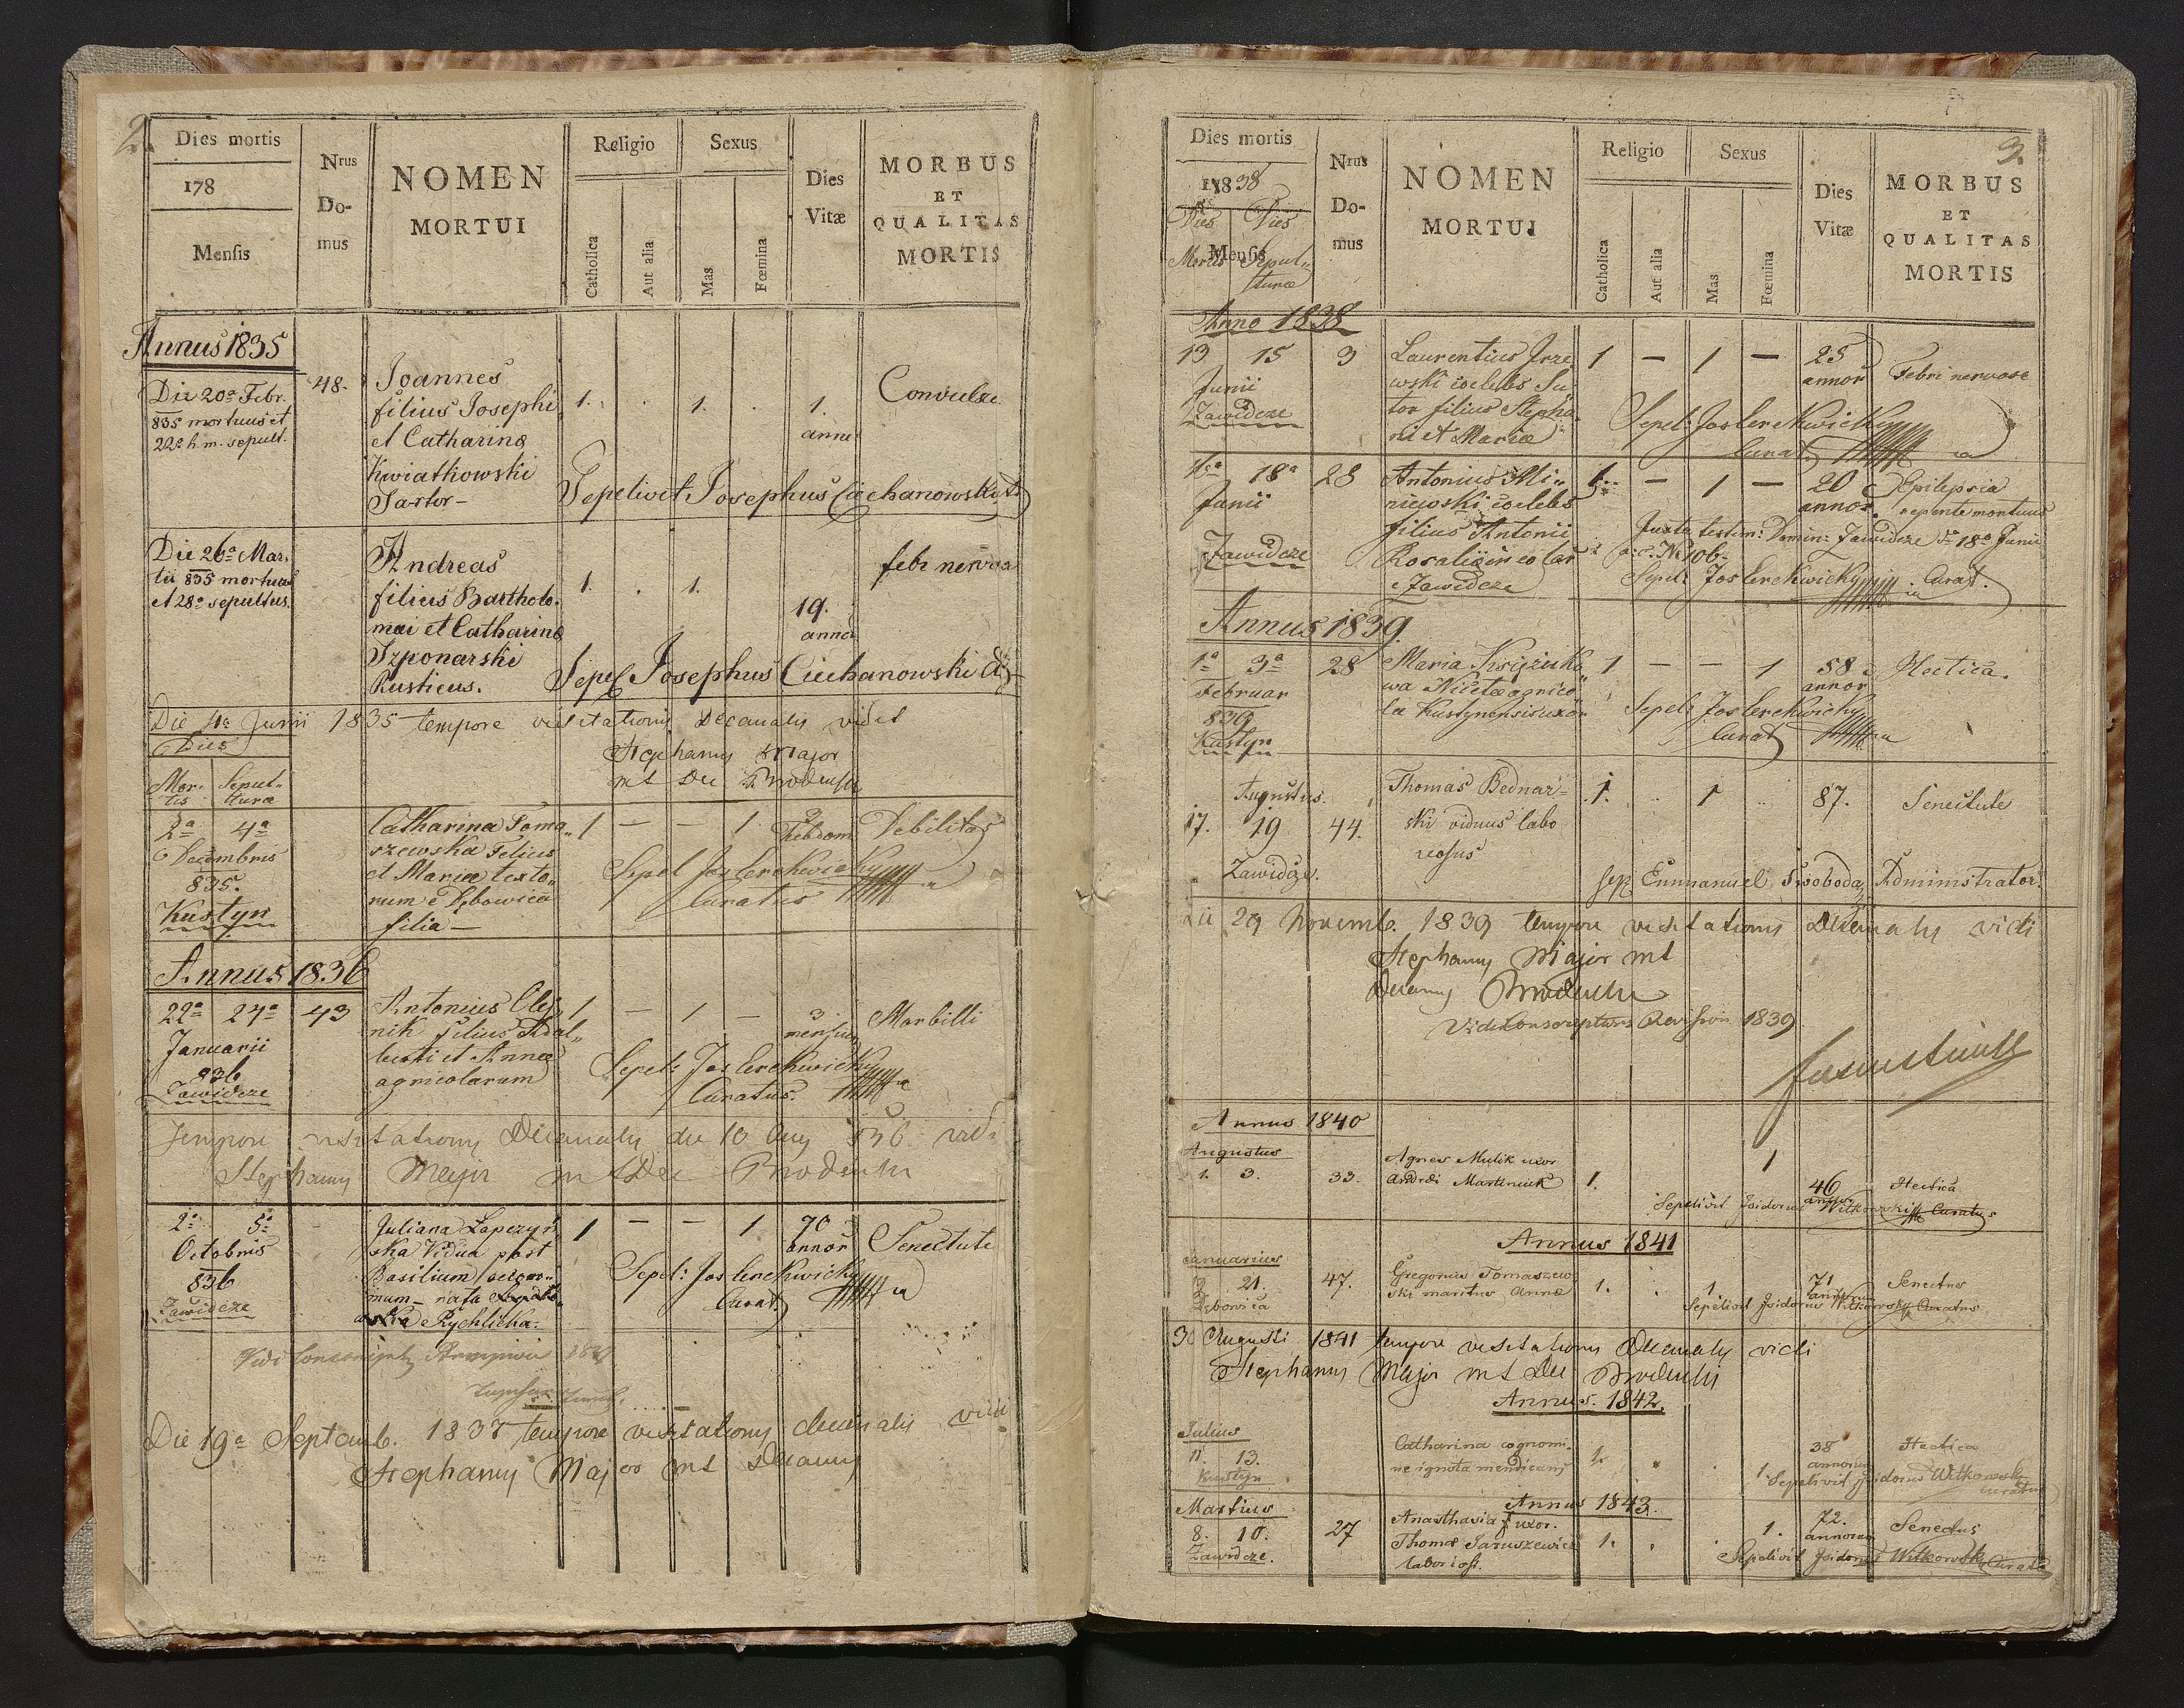 2.
Dies mortis
178
Mensis
Nrus Do- mus
NOMEN
MORTUI
Religio
Catholica
Aut alia
Sexus
Mas
Fœmina
Dies
Vitæ
MORBUS
ET
QUALITAS
MORTIS
Annus 1835
Die 20a Febr.
835 mortuus et
22a h. m. sepult.
48.
Joannes
filius Josephi
et Catharina
Kwiatkowski
Sartor -
1. 1. 1.
anni
Convulze
Sepelivit Josephus Ciechanowski
Die 26a Mar.
tii 835 mortuus
et 28a sepultus.
Andreas
filius Bartholo.
mæi et Catharina
Szponarski
Rusticus.
1. 1.
19.
anno
febr nervosa
Sepel Josephus Ciechanowski
Die 4a Junii 1835 tempore visitationis Decanalis vidit
Stephanus Major
mt Dec Brodensis
Dies
Mor- tis
Sepul- turæ
2a 4a
Decembris
835.
Kustyn
Catharina Toma„
szewska Felicis
et Mariæ texto„
rum e Dębowica
filia —
1 — — 1
3
Hebdom
Debilitas
Sepel Jos Lerchwicky
Curatus
Annus 1836
22a 24a
Januarii
836
Zawidcze
43
Antonius Olej
nik filius Adal„
berti et Annæ
agricolarum
1 — 1 —
3
mensium
Morbilli
Sepel: Jos Lerchwicky
Curatus.
Tempore visitationis Decanalis die 10 Aug 836 vidi
Stephanus Major mt Dec Brodensis
2a 5a
Octobris
836
Zawidcze
Juliana Łapczyń
ska Vidua post
Basilium
mum - nata
Rychlicka.
1 — — 1
70
annor
Senectute
Sepel: Jos Lerchwicky
Curat
Vidi
Die 19a Septemb. 1837 tempore visitationis decanalis vidi
Stephanus Major mt Decanus
3.
Dies mortis
1838
Mensis
Dies Mortis
Dies Sepul- turæ
Nrus Do- mus
NOMEN
MORTUI
Religio
Catholica
Aut alia
Sexus
Mas
Fœmina
Dies
Vitæ
MORBUS
ET
QUALITAS
MORTIS
Anno 1838
13 15
Junii
Zawidcze
3
Laurentius Jrze
wski coelebs Su
tor filius Stepha
ni et Mariæ
1 — 1 —
25
annor
Febri nervose
Sepel: Jos Lerchwicky
Curat
18a
Junii
Zawidcze
28
Antonius Mi„
niewski coelebs
filius Antonii
Rosaliæ incolar
e Zawidcze
1 — 1 —
20
annor.
Epilepsia
repente mortuus
Juxta testim: Domin: Zawidcze de 18a Junii
a: c. N 106.
Sepel: Jos Lerchwicky Curat.
Annus 1839.
1a 3a
Februar
839
Kustyn
28
Maria Księżuko
wa Nicetæ agrico
læ Kustynensis uxor
1 — — 1
58
annor
Hectica.
Sepel: Jos Lerchwicky
Curat
Augustus.
17. 19
Zawidcze.
44.
Thomas Bednar-
ski viduus labo
riosus
1. 1
87.
Senectute
Sep. Emmanuel Swoboda Administrator.
Die 29 Novemb. 1839 tempore visitationis Decanalis vidi
Stephanus Major mt
Decanus Brodensis
Vidi Conscriptionis Revision 1839
Annus 1840
Augustus
1. 3.
33.
Agnes Mulik uxor
Andrei Martiniuk
1. 1
46
annor
Hectica
Sepelivit Isidorus Witkowski Curatus
Annus 1841
Januarius
21.
Dębovica
47.
Gregorius Tomaszew
ski maritus Annæ
1. 1.
71
annorum
Senectus
Sepelivit Isidorus Witkowski Curatus
30 Augusti 1841 tempore visitationis Decanalis vidi
Stephanus Major mt Dec Brodensis
Annus. 1842.
Julius
11. 13.
Kustyn
Catharina cognomi„
ne ignota mendicans
1. 1
38
annorum
Hectica
Sepelivit Isidorus Witkowski
curatus
Annus 1843.
Martius
8. 10.
Zawidcze.
27
Anasthasia uxor.
Thomæ Saruszewicz
laborios.
1. 1.
72.
annorum
Senectus
Sepelivit Isidorus Witkowski Curatus